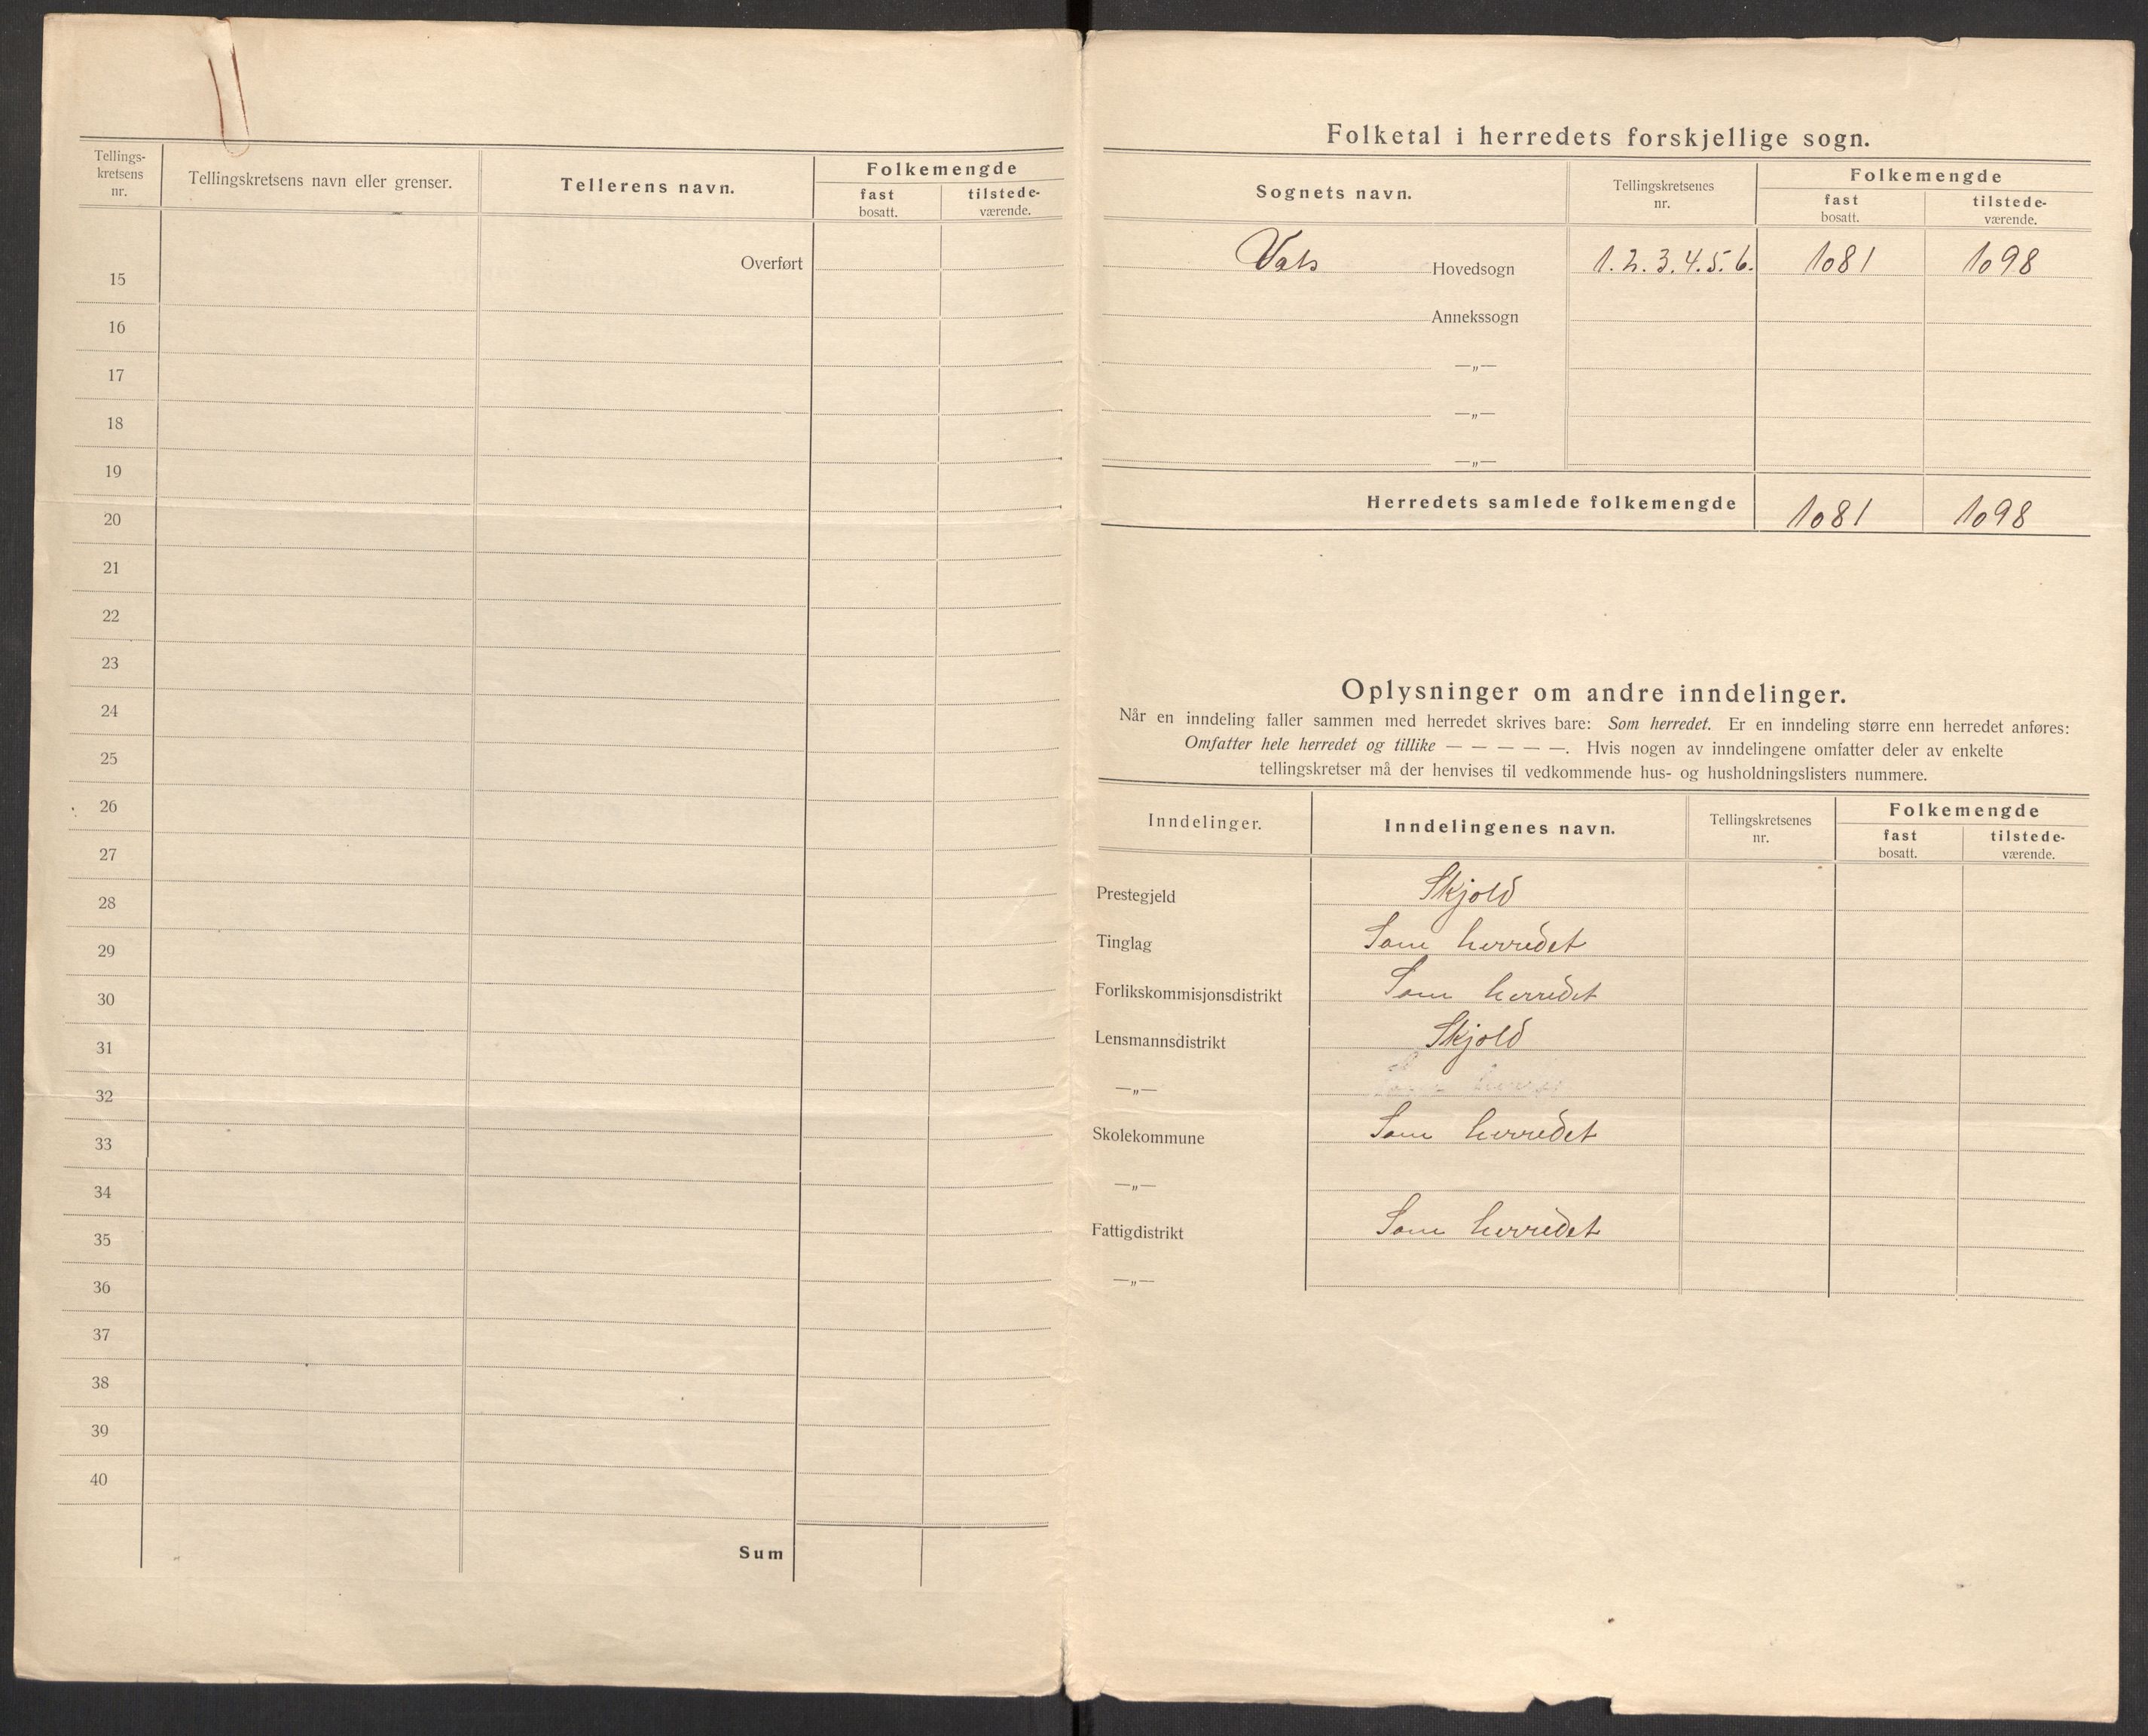 Tellings-
kretsens
nr.
Tellingskretsens navn eller grenser.
Tellerens navn.
Folkemengde
fast
bosatt.
tilstede-
værende.
Overført
15
16
17
18
19
20
21
22
23
24
25
26
27
28
29
30
31
32
33
34
35
36
37
38
39
40
Sum
Folketal i herredets forskjellige sogn.
Sognets navn.
Tellingskretsenes
nr.
Folkemengde
fast
bosatt.
tilstede-
værende.
Vats Hovedsogn 1.2.3.4.5.6. 1081 1098
Annekssogn
—„—
—„—
—„—
Herredets samlede folkemengde 1081 1098
Oplysninger om andre inndelinger.
Når en inndeling faller sammen med herredet skrives bare: Som herredet. Er en inndeling større enn herredet anføres:
Omfatter hele herredet og tillike — — — — —. Hvis nogen av inndelingene omfatter deler av enkelte
tellingskretser må der henvises til vedkommende hus- og husholdningslisters nummere.
Inndelinger.
Inndelingenes navn.
Tellingskretsenes
nr.
Folkemengde
fast
bosatt.
tilstede-
værende.
Prestegjeld Skjold
Tinglag Som herredet
Forlikskommisjonsdistrikt Som herredet
Lensmannsdistrikt Skjold
—„—
Skolekommune Som herredet
—„—
Fattigdistrikt Som herredet
—„—